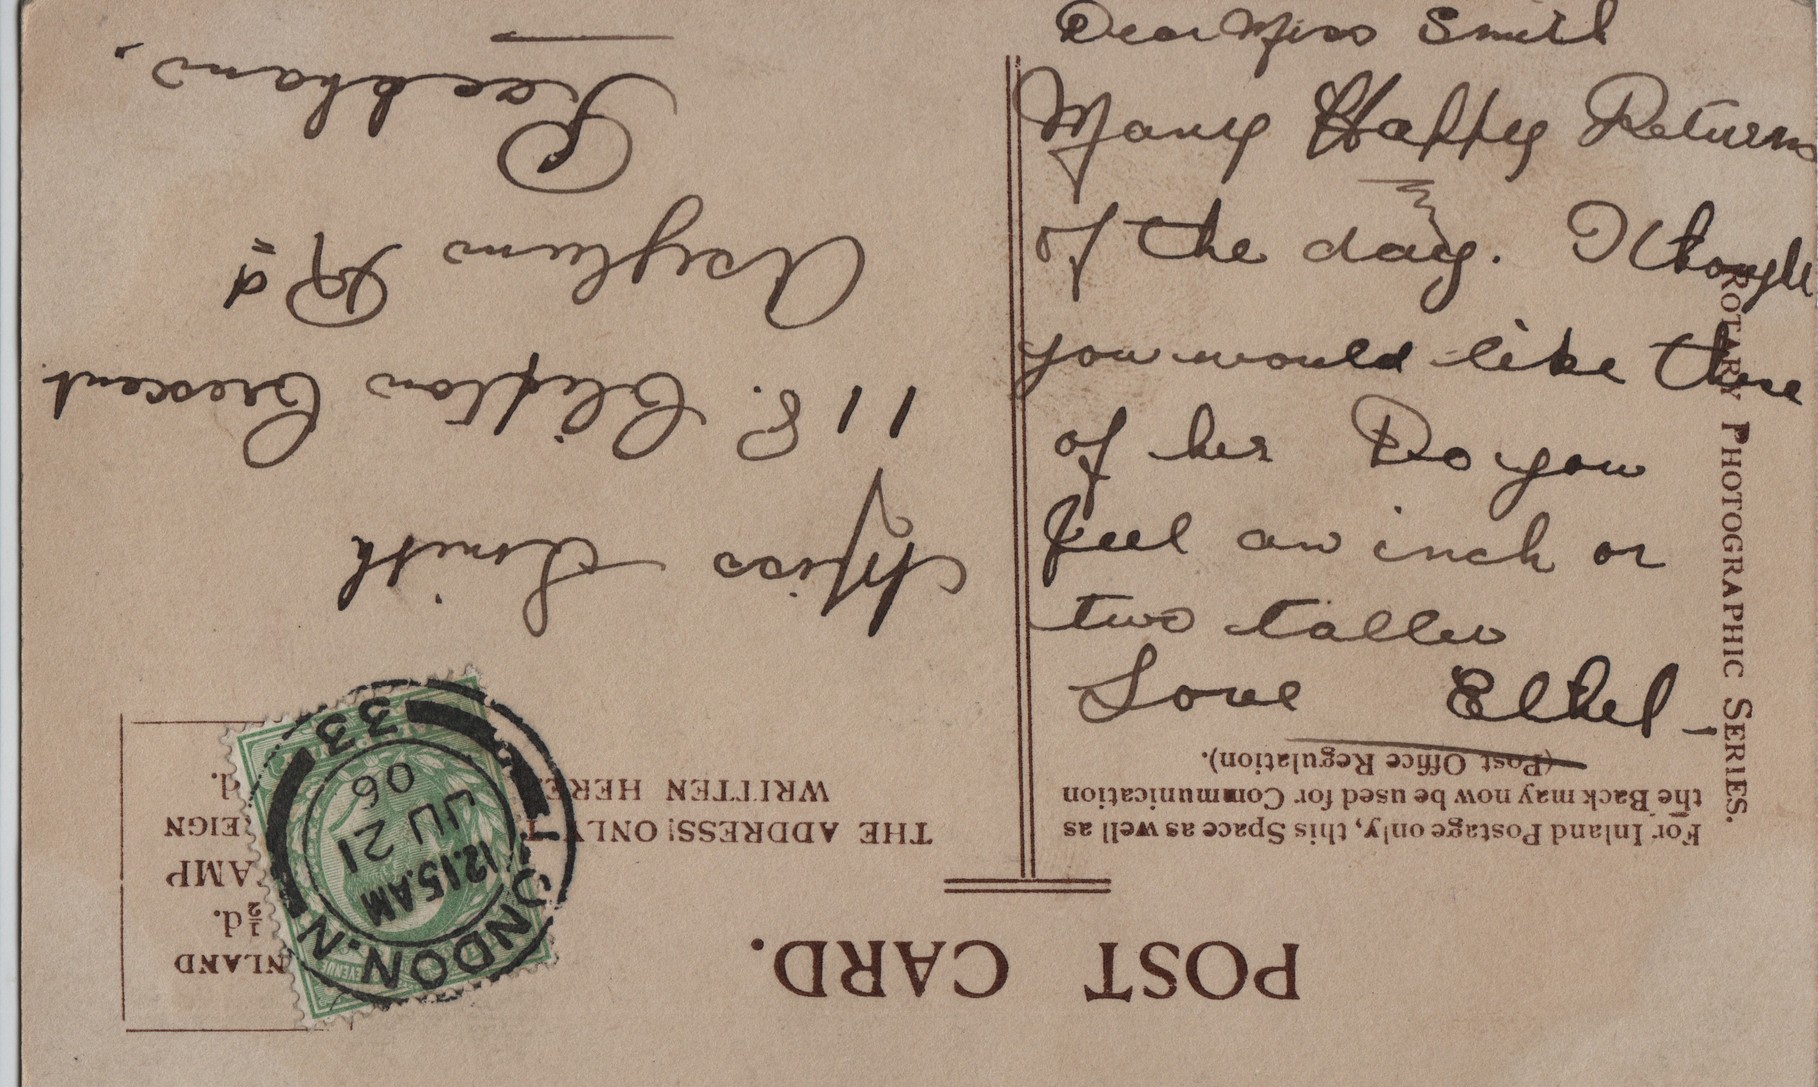 Dear Miss Smith
Many Happy Returns
of the day. I thought
you would like these
of her Do you
feel an inch or
two taller
Love Ethel
Miss Smith
118. Clifton Crescent
Asylum Rd
Peckham.
POST CARD.
For Inland Postage only, this Space as well as
the Back may now be used for Communication
(Post Office Regulation).
THE ADDRESS ONLY
WRITTEN HERE
ROTARY PHOTOGRAPHIC SERIES.
NLAND
½d.
AMP
EIGN
d.
LONDON.N.
12.15AM
JU 21
06
33
REVENUE